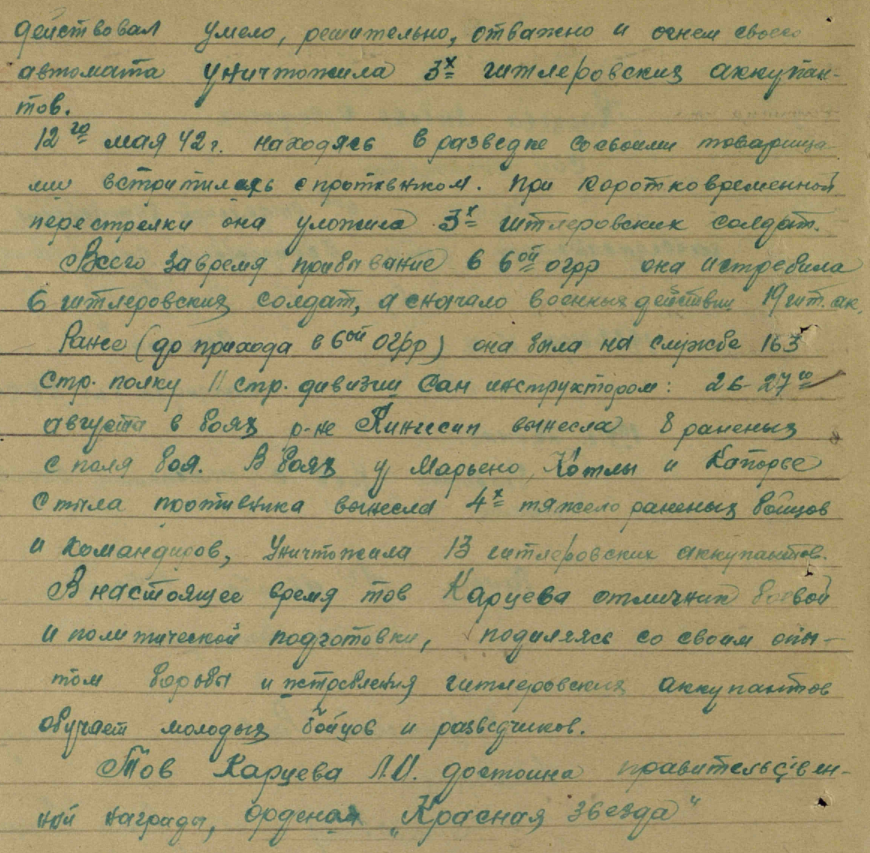 действовал умело, решительно, отважно и огнем своего
автомата уничтожила 3х гитлеровских аккупан-
тов.
12го мая 42г. находясь в разведке со своими товарища-
ми встритилась с противником. При коротковременной
перестрелки она уложила 3х гитлеровских солдат.
Всего за время прибывание в 6ой огрр она истребила
6 гитлеровских солдат, а сначало военных действий 19 гит. ак.
Ранее (до прихода в 6ой ОГрр) она была на службе 163
стр. полку 11 стр. дивизии Сан инструктором: 26-27го
августа в боях р-не Кингисеп вынесла 8 раненых
с поля боя. В боях у Марьено, Котлы и Капорье
с тыла противника вынесла 4х тяжело раненых бойцов
и командиров, уничтожила 13 гитлеровских аккупантов.
В настоящее время тов Карцева отличник боевой
и политической подготовки, подиляясь со своим опы-
том борьбы и истребления гитлеровских аккупантов
обучает молодых бойцов и разведчиков.
Тов Карцева Л.И. достойна правительствен-
ной награды, орденом „Красная звезда"